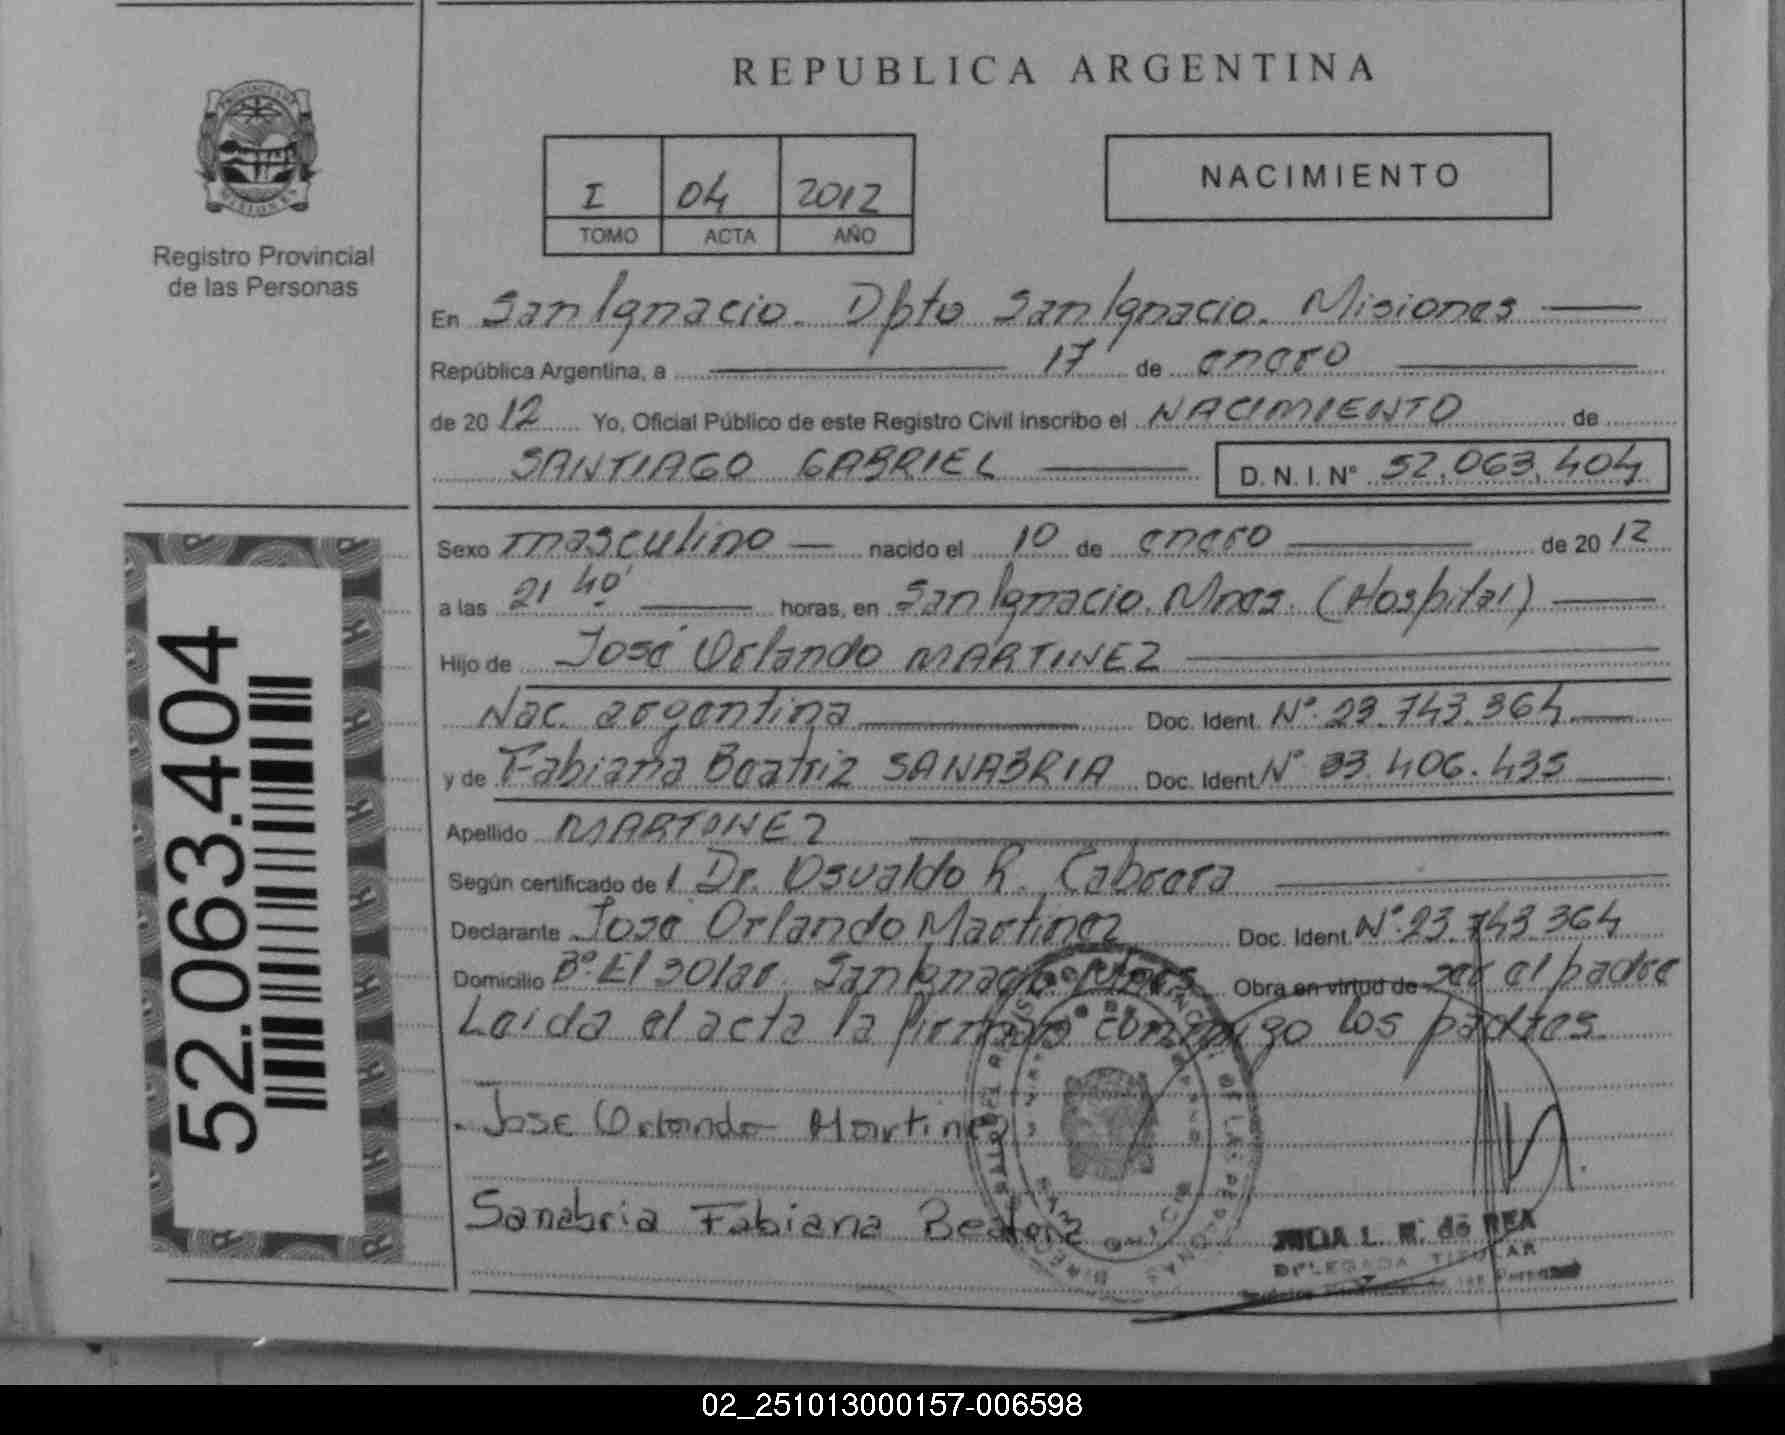 REPUBLICA ARGENTINA
I 04 2012
TOMO ACTA AÑO
NACIMIENTO
Registro Provincial
de las Personas
En San Ignacio. Dpto San Ignacio. Misiones
República Argentina, a 17 de enero
de 20 12 Yo, Oficial Público de este Registro Civil inscribo el NACIMIENTO de
SANTIAGO GABRIEL D. N. I. N° 52.063.404
Sexo masculino nacido el 10 de enero de 20 12
a las 21 40' horas, en San Ignacio Mnes. (Hospital)
Hijo de José Orlando MARTINEZ
Nac. argentina Doc. Ident. N° 23.743.364
y de Fabiana Beatriz SANABRIA Doc. Ident. N° 33.406.435
Apellido MARTINEZ
Según certificado de l Dr. Osvaldo R. Cabrera
Declarante José Orlando Martinez Doc. Ident. N° 23.743.364
Domicilio B° El Solar. San Ignacio Mnes Obra en virtud de ser el padre
Leida el acta la firman conmigo los padres.
Jose Orlando Martinez
Sanabria Fabiana Beatriz
L. R. de REA
DELEGADA TITULAR
52.063.404
02_251013000157-006598